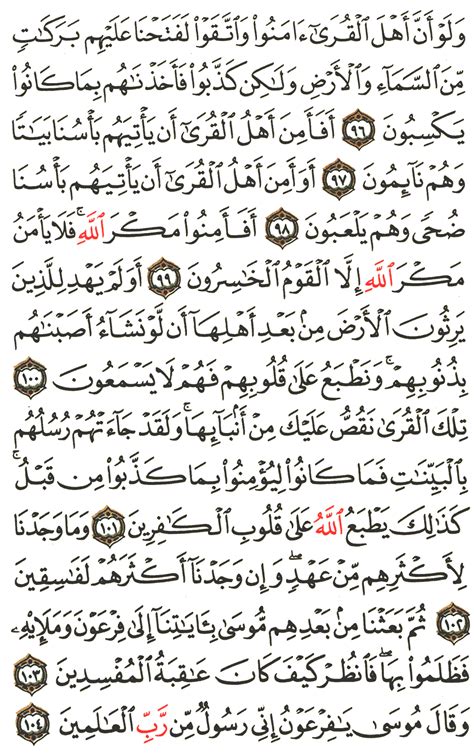 وَلَوۡ أَنَّ أَهۡلَ ٱلۡقُرَىٰٓ ءَامَنُواْ وَٱتَّقَوۡاْ لَفَتَحۡنَا عَلَيۡهِم بَرَكَٰتٖ
مِّنَ ٱلسَّمَآءِ وَٱلۡأَرۡضِ وَلَٰكِن كَذَّبُواْ فَأَخَذۡنَٰهُم بِمَا كَانُواْ
يَكۡسِبُونَ ٩٦ أَفَأَمِنَ أَهۡلُ ٱلۡقُرَىٰٓ أَن يَأۡتِيَهُم بَأۡسُنَا بَيَٰتٗا
وَهُمۡ نَآئِمُونَ ٩٧ أَوَأَمِنَ أَهۡلُ ٱلۡقُرَىٰٓ أَن يَأۡتِيَهُم بَأۡسُنَا
ضُحٗى وَهُمۡ يَلۡعَبُونَ ٩٨ أَفَأَمِنُواْ مَكۡرَ ٱللَّهِۚ فَلَا يَأۡمَنُ
مَكۡرَ ٱللَّهِ إِلَّا ٱلۡقَوۡمُ ٱلۡخَٰسِرُونَ ٩٩ أَوَلَمۡ يَهۡدِ لِلَّذِينَ
يَرِثُونَ ٱلۡأَرۡضَ مِنۢ بَعۡدِ أَهۡلِهَآ أَن لَّوۡ نَشَآءُ أَصَبۡنَٰهُم
بِذُنُوبِهِمۡۚ وَنَطۡبَعُ عَلَىٰ قُلُوبِهِمۡ فَهُمۡ لَا يَسۡمَعُونَ ١٠٠
تِلۡكَ ٱلۡقُرَىٰ نَقُصُّ عَلَيۡكَ مِنۡ أَنۢبَآئِهَاۚ وَلَقَدۡ جَآءَتۡهُمۡ رُسُلُهُم
بِٱلۡبَيِّنَٰتِ فَمَا كَانُواْ لِيُؤۡمِنُواْ بِمَا كَذَّبُواْ مِن قَبۡلُۚ
كَذَٰلِكَ يَطۡبَعُ ٱللَّهُ عَلَىٰ قُلُوبِ ٱلۡكَٰفِرِينَ ١٠١ وَمَا وَجَدۡنَا
لِأَكۡثَرِهِم مِّنۡ عَهۡدٖۖ وَإِن وَجَدۡنَآ أَكۡثَرَهُمۡ لَفَٰسِقِينَ
١٠٢ ثُمَّ بَعَثۡنَا مِنۢ بَعۡدِهِم مُّوسَىٰ بِـَٔايَٰتِنَآ إِلَىٰ فِرۡعَوۡنَ وَمَلَإِيْهِۦ
فَظَلَمُواْ بِهَاۖ فَٱنظُرۡ كَيۡفَ كَانَ عَٰقِبَةُ ٱلۡمُفۡسِدِينَ ١٠٣
وَقَالَ مُوسَىٰ يَٰفِرۡعَوۡنُ إِنِّي رَسُولٞ مِّن رَّبِّ ٱلۡعَٰلَمِينَ ١٠٤